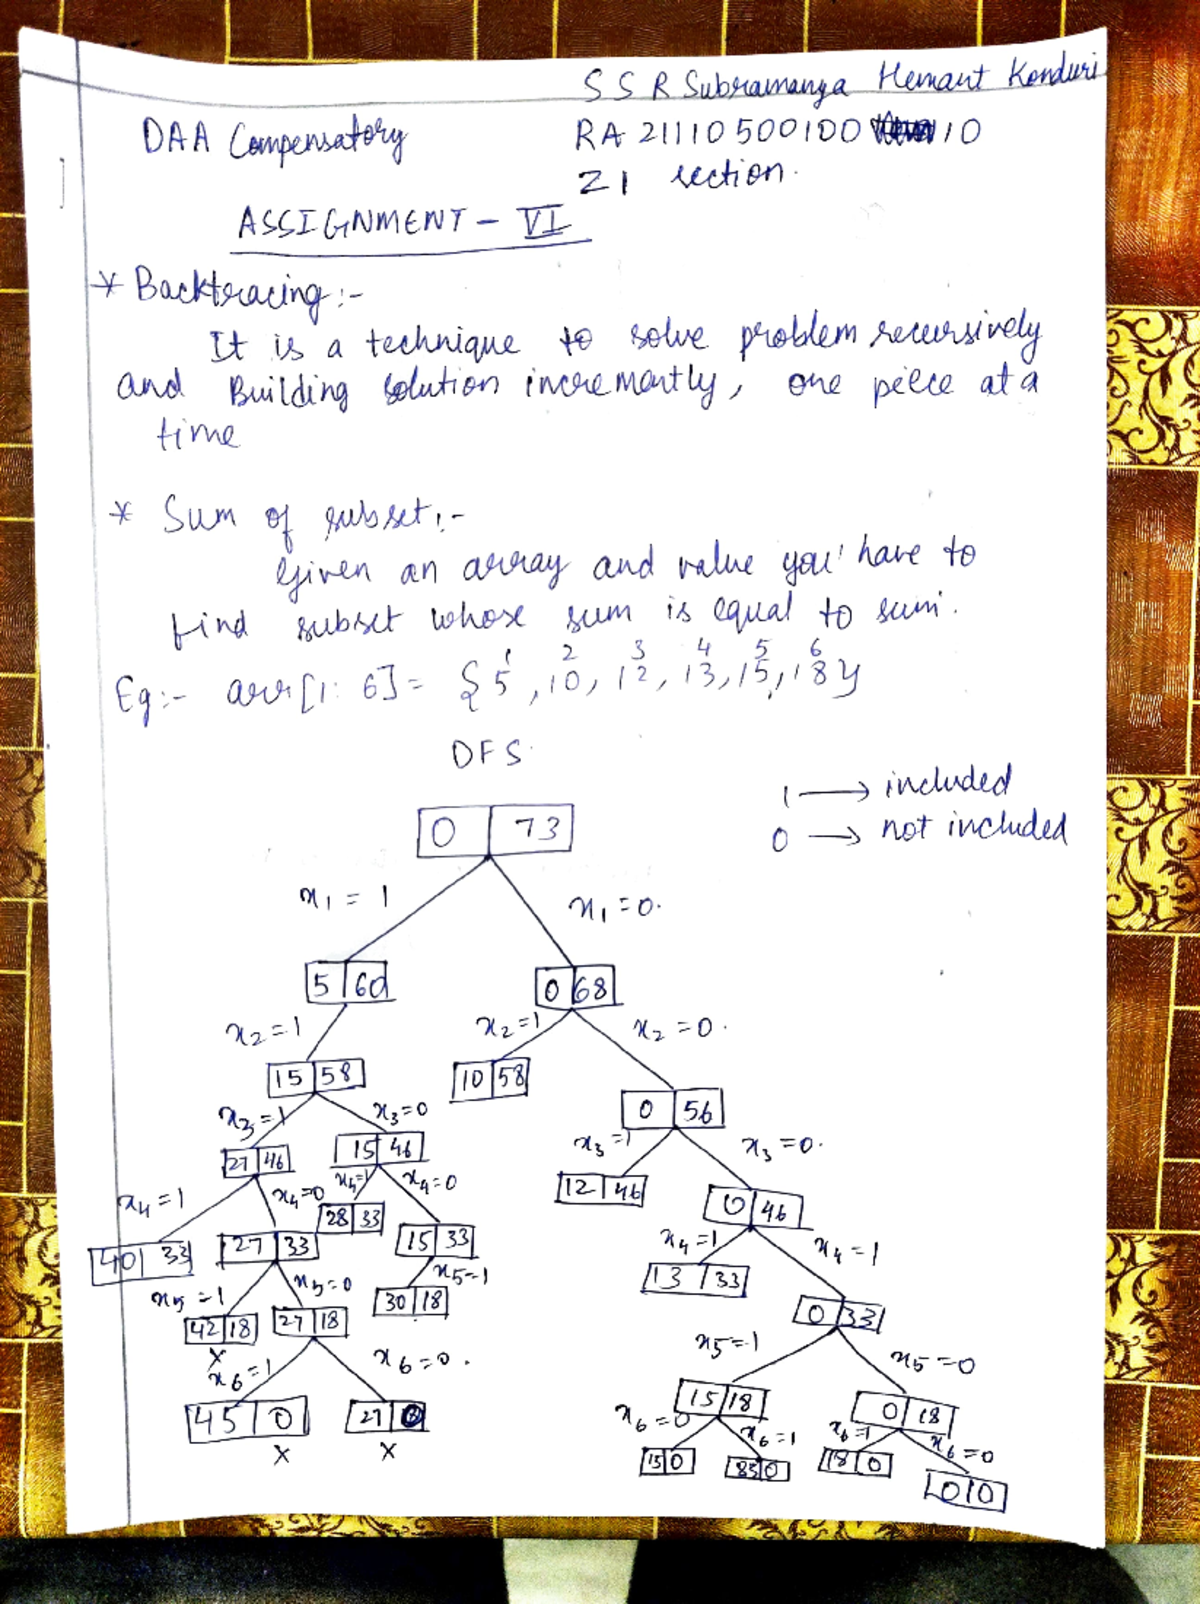 S S R Subramanya Hemant Konduri
DAA Compensatory
RA 21110500100 10
Z1 section.
ASSIGNMENT - VI
* Backtracing :-
It is a technique to solve problem recursively
and Building solution incremently, one peice at a
time
* Sum of subset :-
Given an array and value you have to
find subset whose sum is equal to sum.
1 2 3 4 5 6
Eg :- arr[1: 6] = {5, 10, 12, 13, 15, 18}
DFS
1 → included
0 → not included
0 | 73
x1 = 1 x1 = 0.
5 | 60 0 | 68
x2 = 1 x2 = 1 x2 = 0.
15 | 58 10 | 58 0 | 56
x3 = 1 x3 = 0 x3 = 1 x3 = 0.
27 | 46 15 | 46 12 | 46 0 | 46
x4 = 1 x4 = 0 x4 = 1 x4 = 0 x4 = 1 x4 = 1
40 | 33 27 | 33 28 | 33 15 | 33 13 | 33 0 | 33
x5 = 1 x5 = 0 x5 = 1 x5 = 1 x5 = 0
42 | 18 27 | 18 30 | 18 15 | 18 0 | 18
X
x6 = 1 x6 = 0. x6 = 0 x6 = 1 x6 = 1 x6 = 0
45 | 0 27 | 15 | 0 | 0 18 | 0 0 | 0
X X